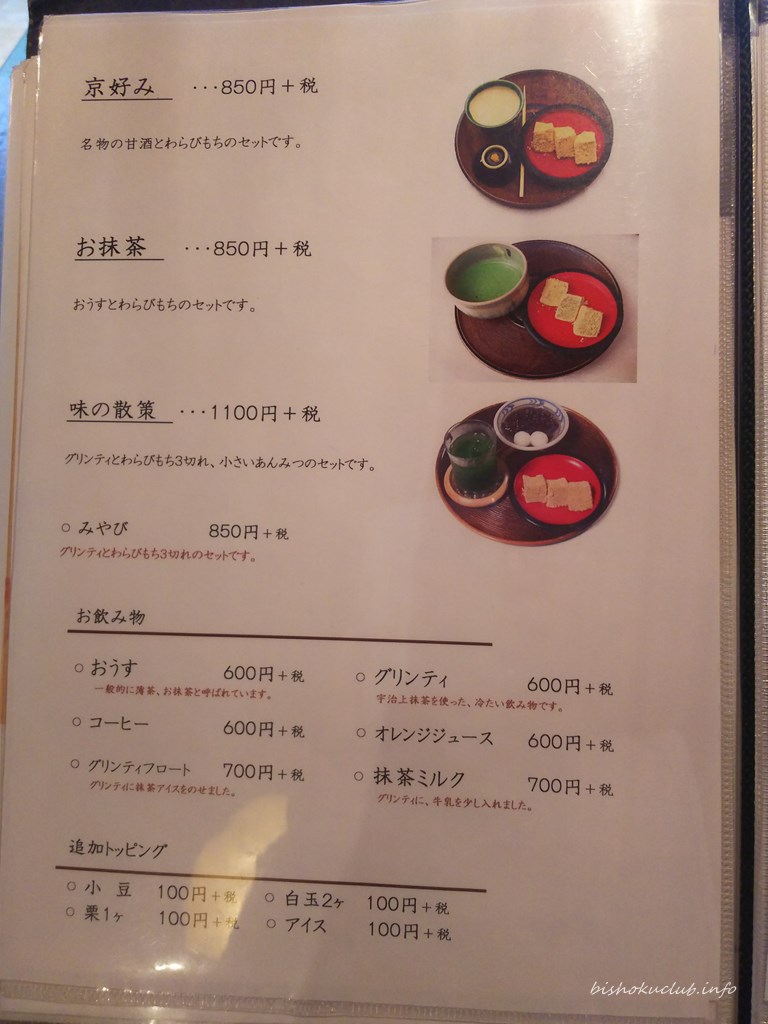 京好み ・・・850円＋税
名物の甘酒とわらびもちのセットです。
お抹茶 ・・・850円＋税
おうすとわらびもちのセットです。
味の散策 ・・・1100円＋税
グリンティとわらびもち3切れ、小さいあんみつのセットです。
○ みやび 850円＋税
グリンティとわらびもち3切れのセットです。
お飲み物
○ おうす 600円＋税
一般的に薄茶、お抹茶と呼ばれています。
○ グリンティ 600円＋税
宇治上抹茶を使った、冷たい飲み物です。
○ コーヒー 600円＋税
○ オレンジジュース 600円＋税
○ グリンティフロート 700円＋税
グリンティに抹茶アイスをのせました。
○ 抹茶ミルク 700円＋税
グリンティに、牛乳を少し入れました。
追加トッピング
○ 小 豆 100円＋税
○ 白玉2ヶ 100円＋税
○ 栗1ヶ 100円＋税
○ アイス 100円＋税
bishokuclub.info